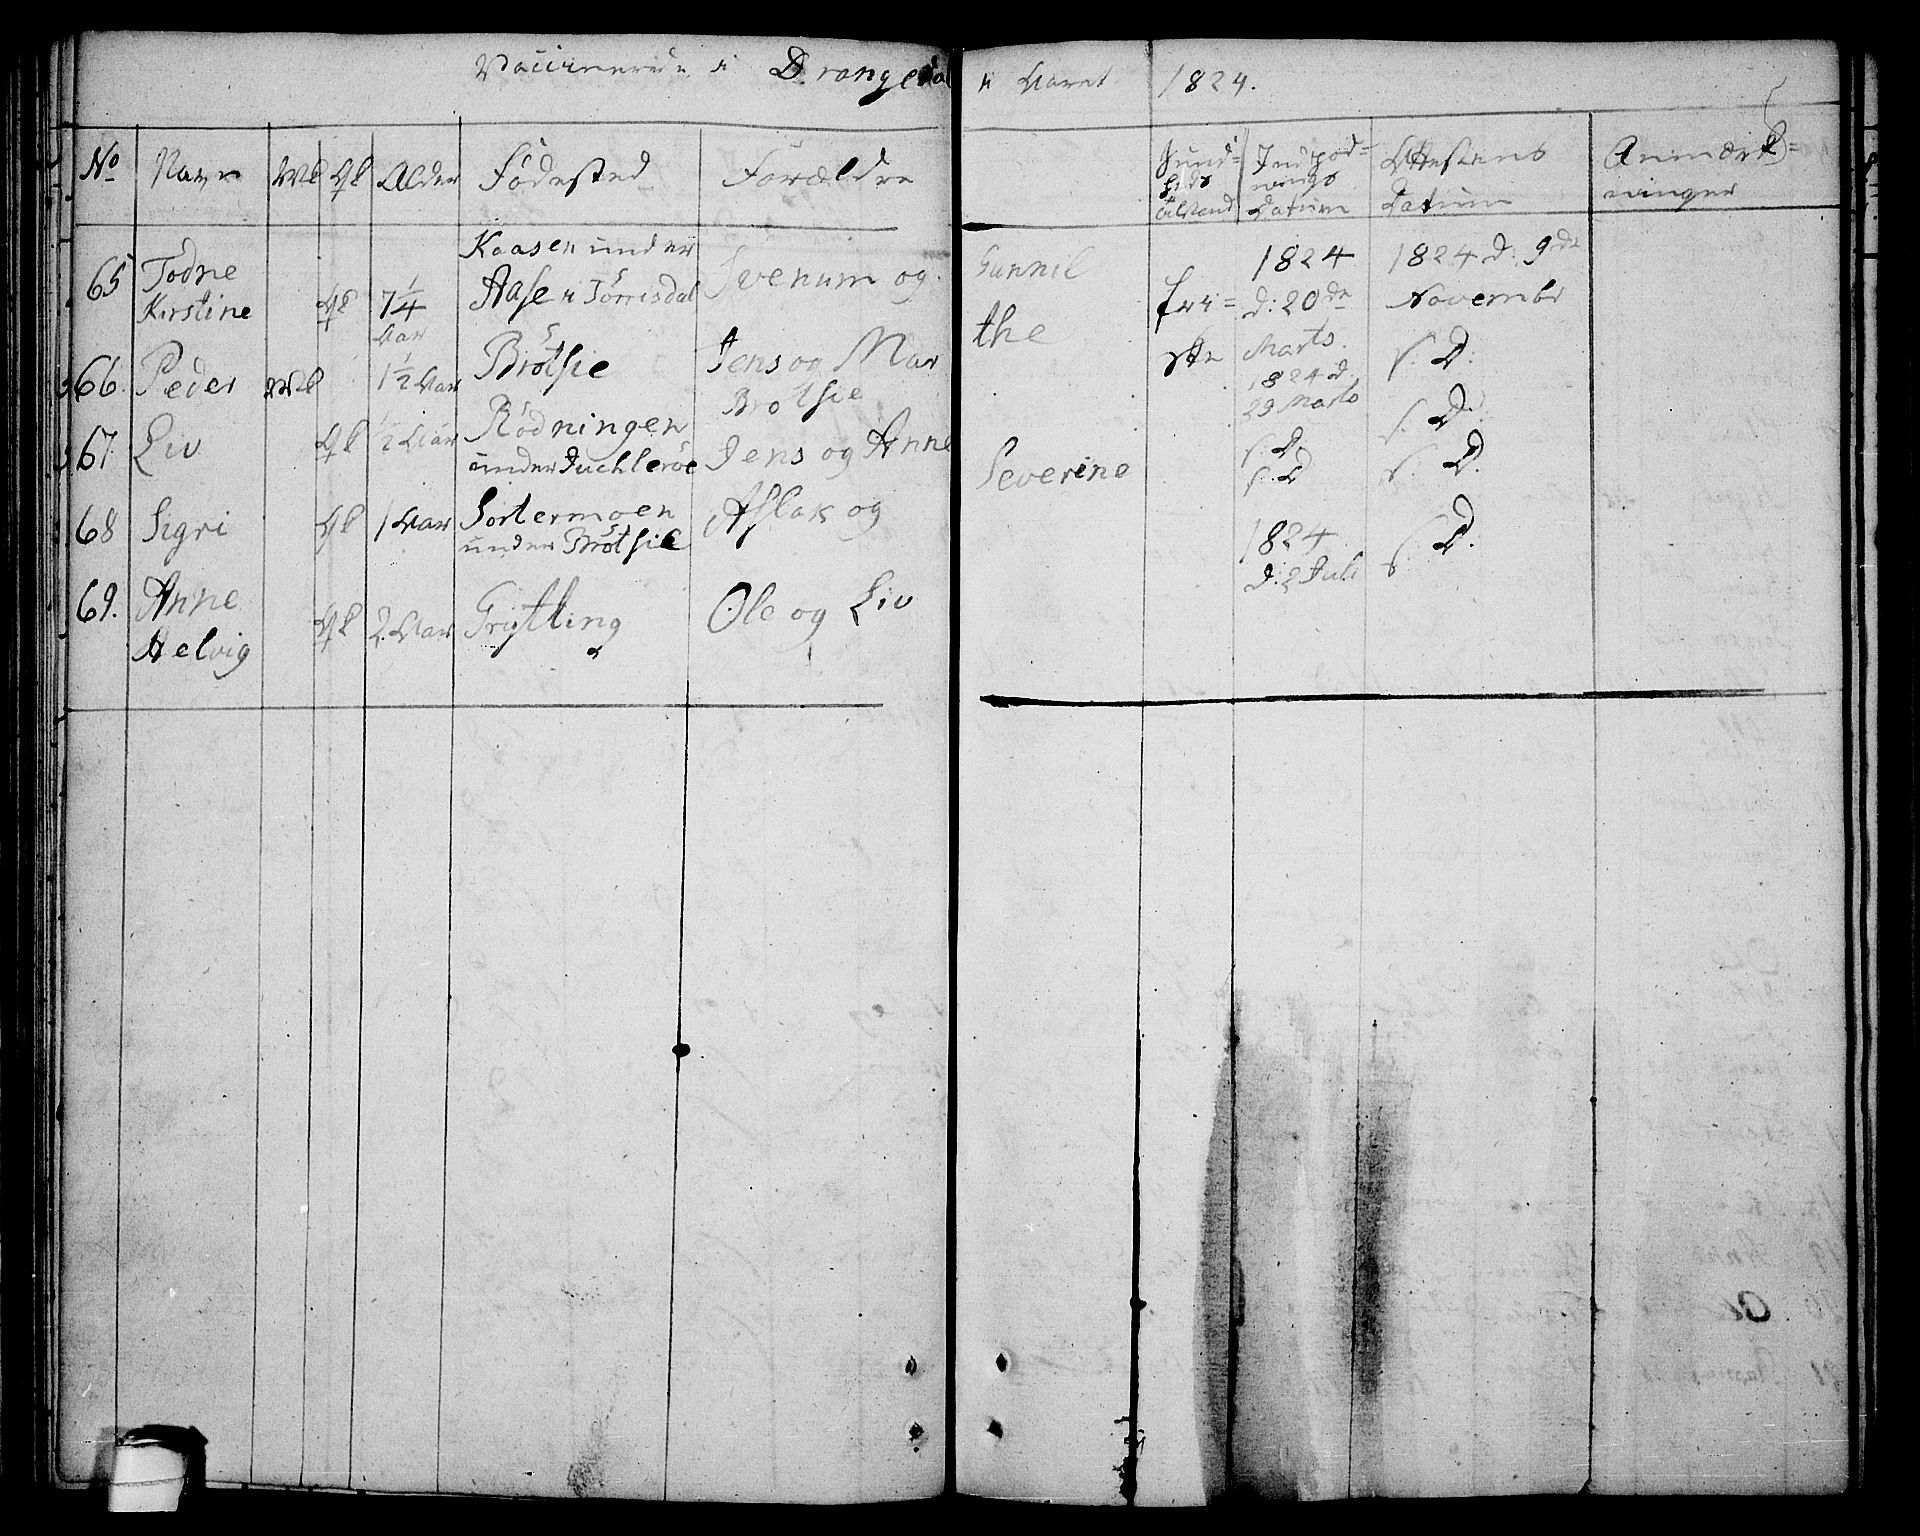 Vaccinerede i Drangedal i Aaret 1824.
No Navn Mk Qk Alder Födested Forældre Sund= heds tilstand Indpod= nings Datum Attestens Datum Anmærk= ninger
65 Todne Kirstine Qk 7 1/4 Aar Kaasen under Aase i Törrisdal Svenum og Gunnil fri= ske 1824 d: 20de Marts. 1824 d. 9de Novembr
66. Peder Mk 1 1/2 Aar Brötsie Jens og Mar the Brötsie 1824 d. 29 Marts s. D.
67. Liv Qk 1/2 Aar Rödningen under Juchleröe Jens og Anne s. D s. D.
68 Sigri Qk 1 Aar Sortermoen under Brötsie Aslak og Severine s. D s. D.
69. Anne Helvig Qk 2. Aar Grytting Ole og Liv 1824 d. 2 Juli s. D.